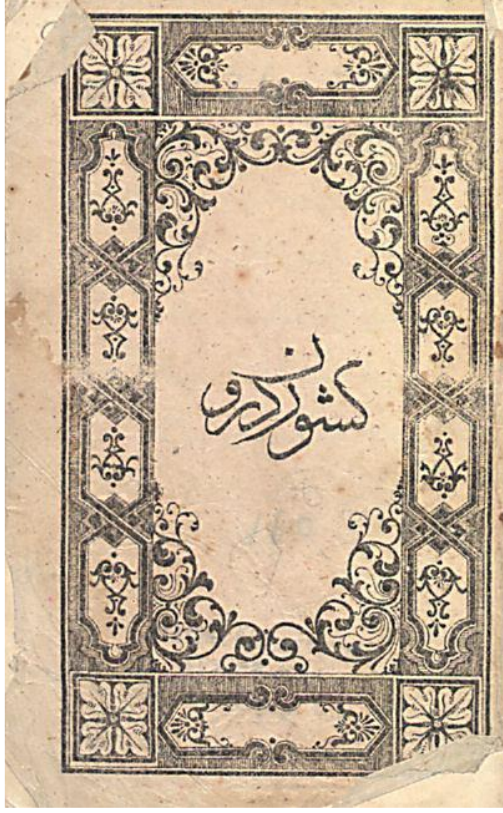 کشور درون